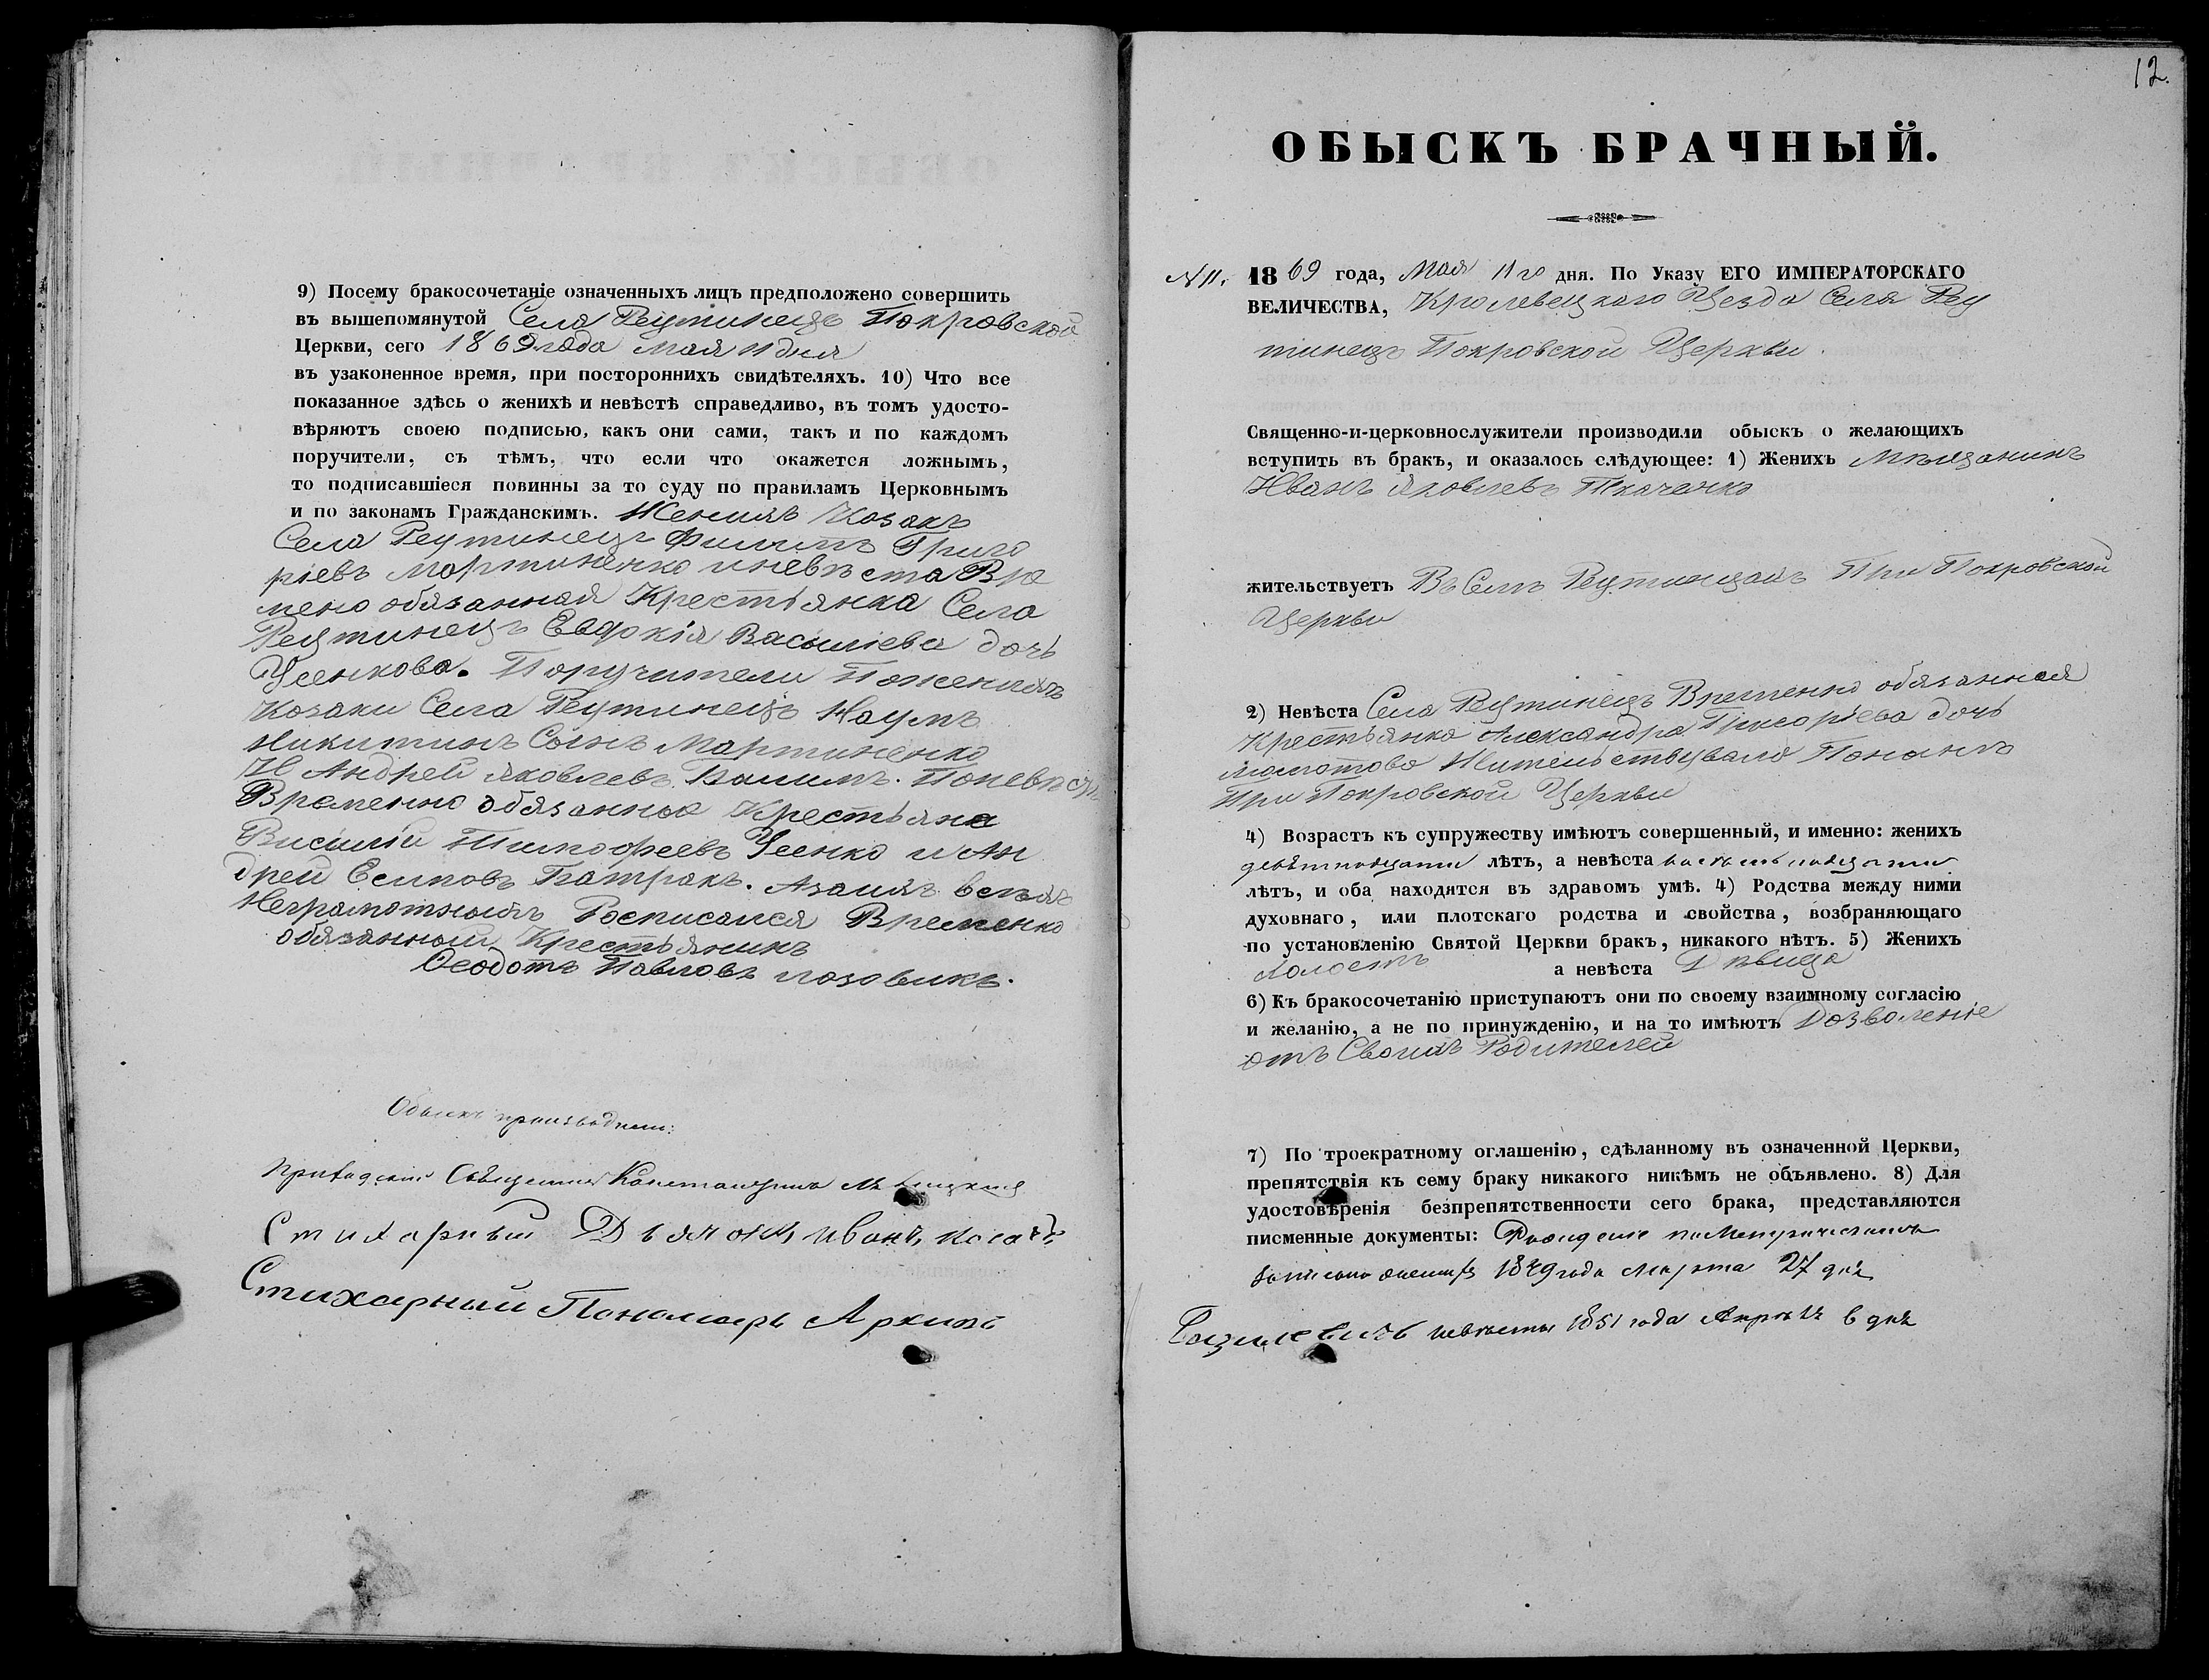 9) Посему бракосочетаніе означенныхъ лицъ предположено совершить
въ вышепомянутой Села Реутинецъ Покровской
Церкви, сего 1869 года мая 11 дня
въ узаконенное время, при постороннихъ свидѣтеляхъ. 10) Что все
показанное здѣсь о женихѣ и невѣстѣ справедливо, въ томъ удосто-
вѣряютъ своею подписью, какъ они сами, такъ и по каждомъ
поручители, съ тѣмъ, что если что окажется ложнымъ,
то подписавшіеся повинны за то суду по правиламъ Церковнымъ
и по законамъ Гражданскимъ. Женихъ Козакъ
Села Реутинецъ Филипъ Григо
ріевъ Мартиненко и невѣста Вре
мено обязанная Крестьянка Села
Реутинецъ Евдокія Васильева дочь
Усенкова. Поручители По женихѣ
Козаки Села Реутинецъ Наумъ
Никитинъ Сынъ Мартиненко
И Андрей Яковлевъ. По невѣстѣ
Временно обязанные Крестьяне
Василій Тимофеевъ Усенко и Ан
дрей Есиповъ Батракъ. А за нихъ всѣхъ
Неграмотныхъ Росписался Временно
обязанный Крестьянинъ
Ѳеодотъ Павловъ Лозовикъ.
Обыскъ производили:
Приходскій Священникъ Константинъ Левицкій
Стихарный Дьячокъ Иванъ
Стихарный Пономарь Архипъ
12.
ОБЫСКЪ БРАЧНЫЙ.
N 11. 1869 года, Мая 11го дня. По Указу ЕГО ИМПЕРАТОРСКАГО
ВЕЛИЧЕСТВА, Кролевецкаго Уезда Села Реу
тинецъ Покровской Церкви.
Священно-и-церковнослужители производили обыскъ о желающихъ
вступить въ бракъ, и оказалось слѣдующее: 1) Женихъ Мѣщанинъ
Иванъ Яковлевъ Ткаченко
жительствуетъ Въ Селѣ Реутинцахъ При Покровской
Церкви
2) Невѣста Села Реутинецъ Временно обязанная
Крестьянка Александра Григоріева дочь
Жительствувала
При Покровской Церкви
4) Возрастъ къ супружеству имѣютъ совершенный, и именно: женихъ
девятнадцати лѣтъ, а невѣста восемьнадцати
лѣтъ, и оба находятся въ здравомъ умѣ. 4) Родства между ними
духовнаго, или плотскаго родства и свойства, возбраняющаго
по установленію Святой Церкви бракъ, никакого нѣтъ. 5) Женихъ
холостъ а невѣста Дѣвица
6) Къ бракосочетанію приступаютъ они по своему взаимному согласію
и желанію, а не по принужденію, и на то имѣютъ Дозволеніе
отъ Своихъ Родителей
7) По троекратному оглашенію, сдѣланному въ означенной Церкви,
препятствія къ сему браку никакого никѣмъ не объявлено. 8) Для
удостовѣренія безпрепятственности сего брака, представляются
писменные документы: Рожденіе по Метрическимъ
записано жениха 1849 года Марта 27 дня
Базилевичъ невѣсты 1851 года Апрѣля 6 дня